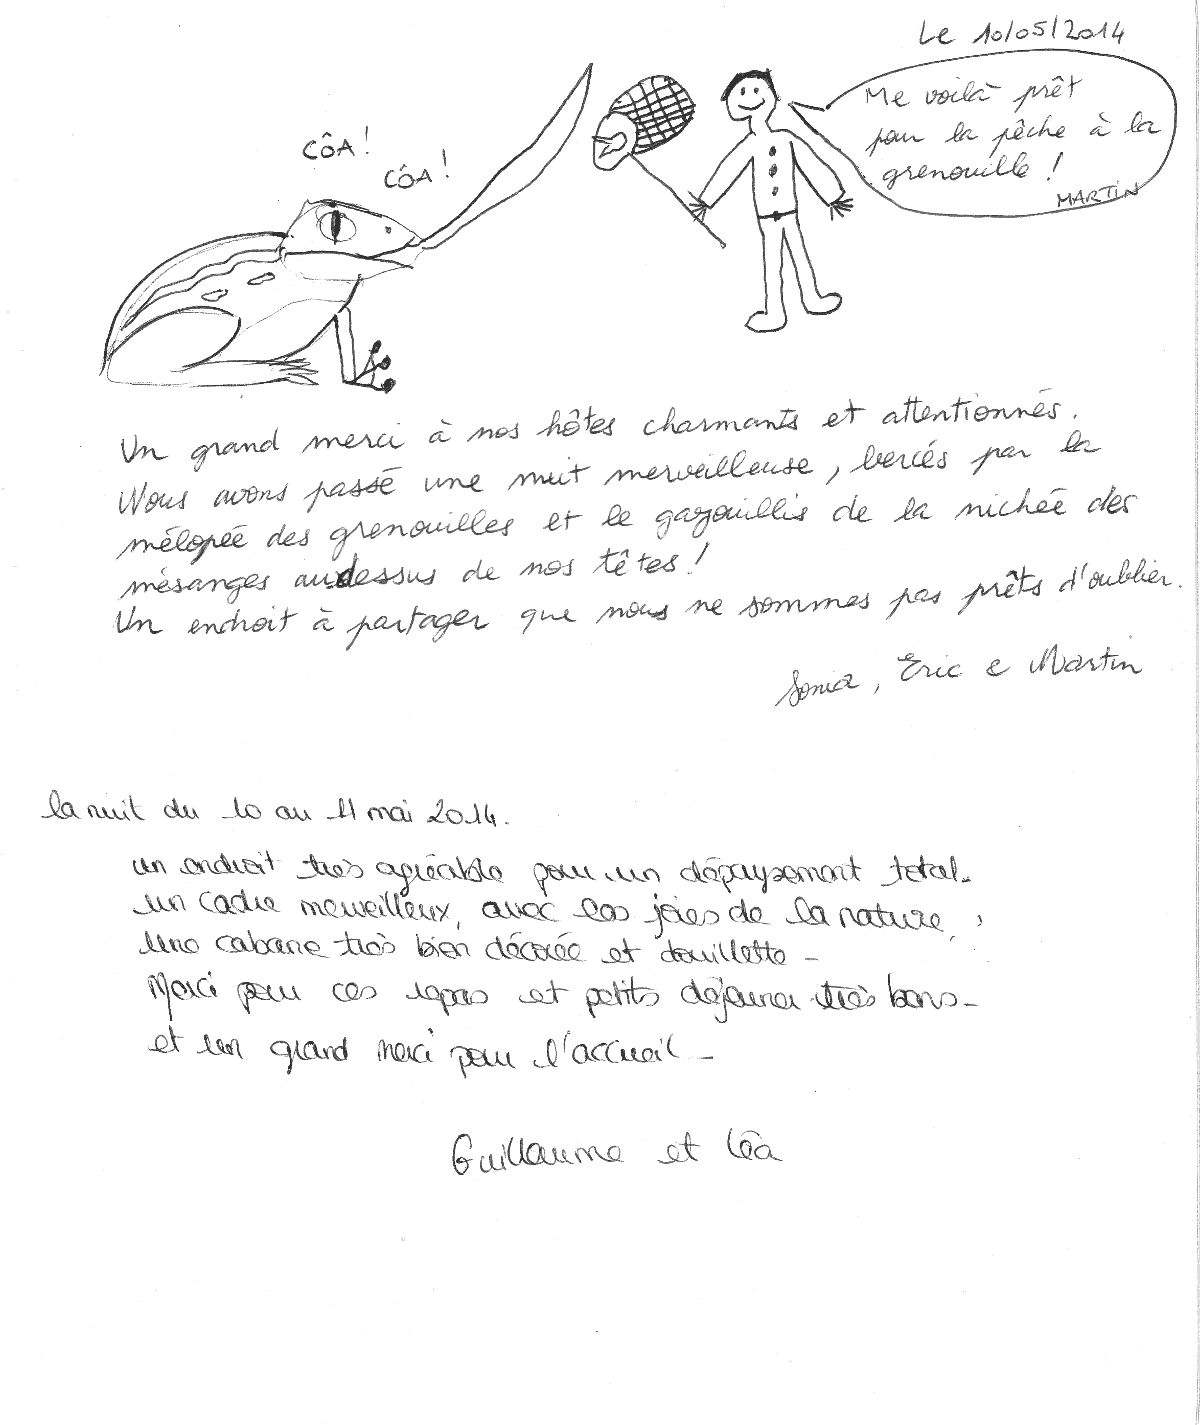 Le 10/05/2014
Me voilà prêt
pour la pêche à la
grenouille !
MARTIN
CÔA !
CÔA !
Un grand merci à nos hôtes charmants et attentionnés.
Nous avons passé une nuit merveilleuse, bercés par la
mélopée des grenouilles et le gazouillis de la nichée des
mésanges au dessus de nos têtes !
Un endroit à partager que nous ne sommes pas prêts d'oublier.
Sonia, Eric e Martin
la nuit du 10 au 11 mai 2014.
un endroit très agréable pour un dépaysement total.
un cadre merveilleux, avec les joies de la nature,
Une cabane très bien décorée et douillette -
Merci pour ces repas et petits déjeuner très bons -
et un grand merci pour l'accueil -
Guillaume et Léa